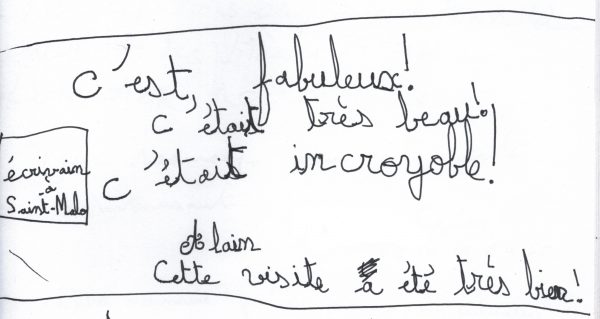 c'est fabuleux!
c'était très beau!
c'était incroyoble!
écrivain
à
Saint-Malo
Alain
Cette visite a été très bien!